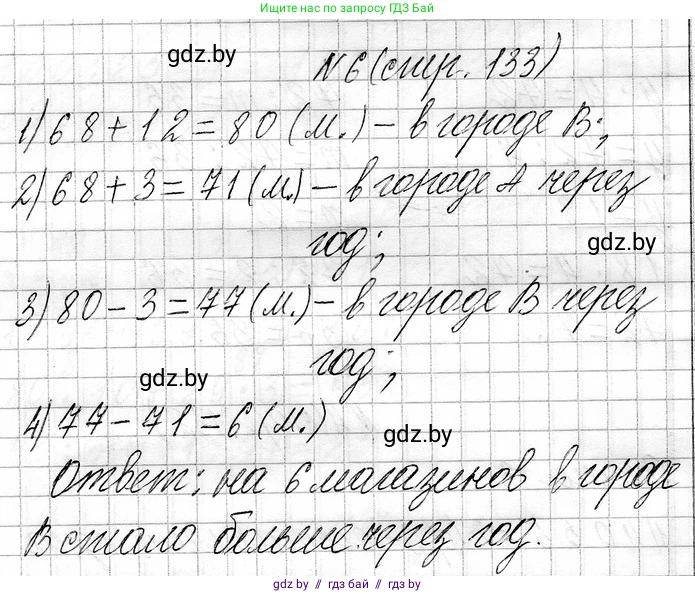 Ищите нас по запросу ГДЗ Бай
gdz.by
№6 (стр. 133)
1) 68+12=80 (м.) – в городе В;
2) 68+3=71 (м.) – в городе А через
год;
gdz.by
3) 80-3=77 (м.) – в городе В через
год;
gdz.by
4) 77-71=6 (м.)
gdz.by
Ответ: на 6 магазинов в городе
В стало больше через год.
gdz.by // гдз бай // gdz.by